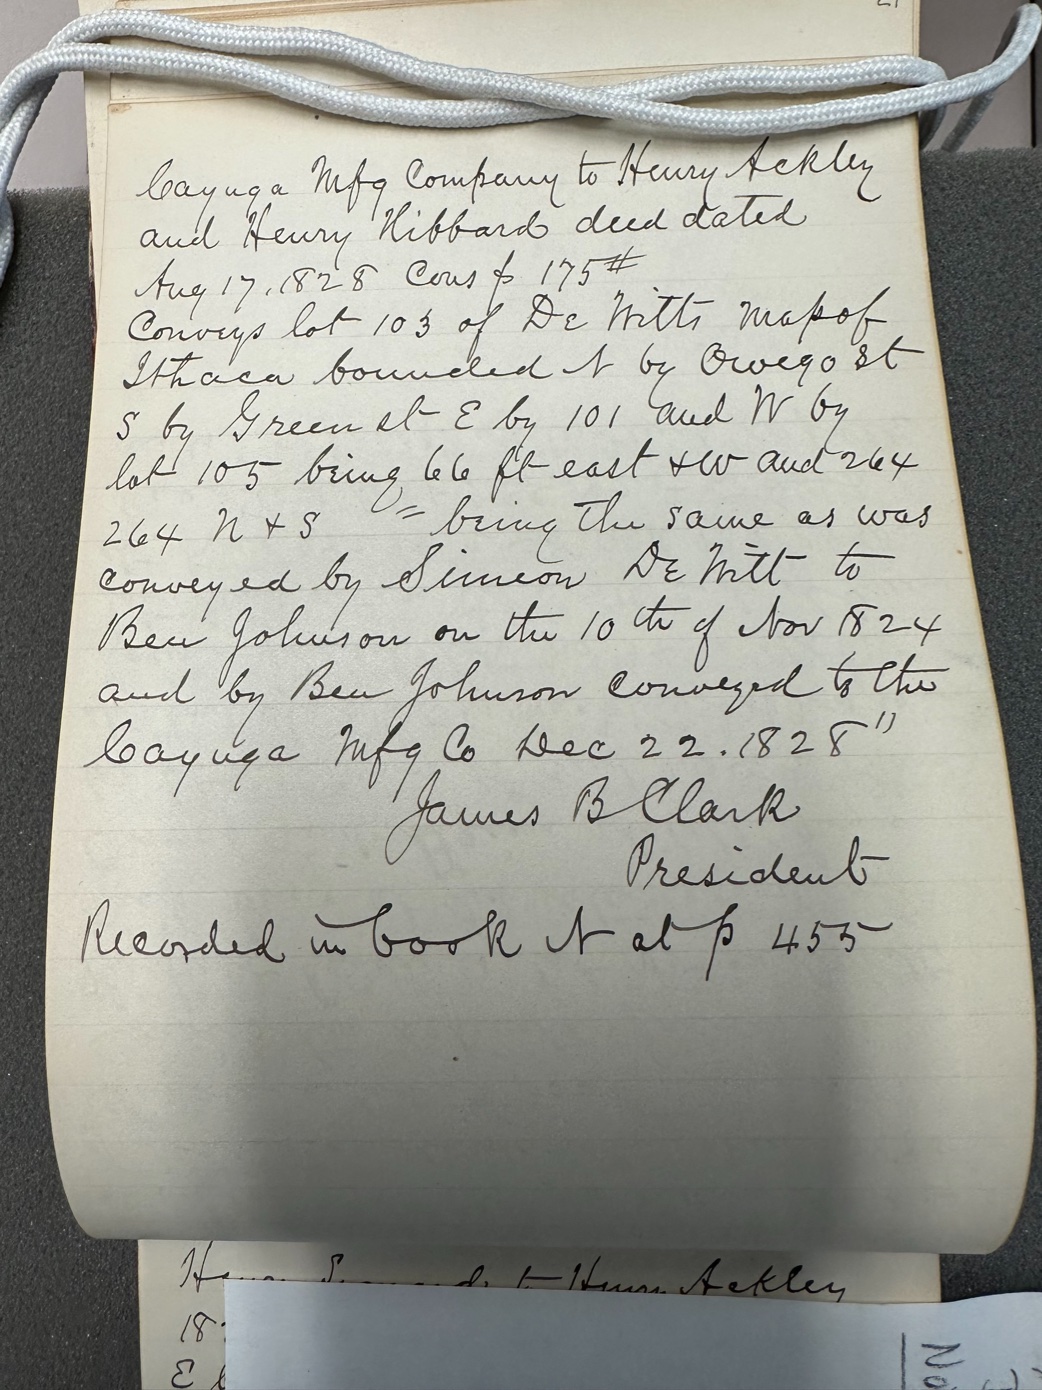 21
Cayuga Mfg Company to Henry Ackley
and Henry Hibbard deed dated
Aug 17, 1828 Cons $ 175#
Conveys lot 103 of De Witts Map of
Ithaca bounded N by Owego St
S by Green st E by 101 and W by
lot 105 being 66 ft east & W and 264
264 N & S " being the same as was
conveyed by Simeon De Witt to
Ben Johnson on the 10th of Nov 1824
and by Ben Johnson conveyed to the
Cayuga Mfg Co Dec 22. 1828"
James B Clark
President
Recorded in book N at p 455
Henry to Henry Ackley
18
E